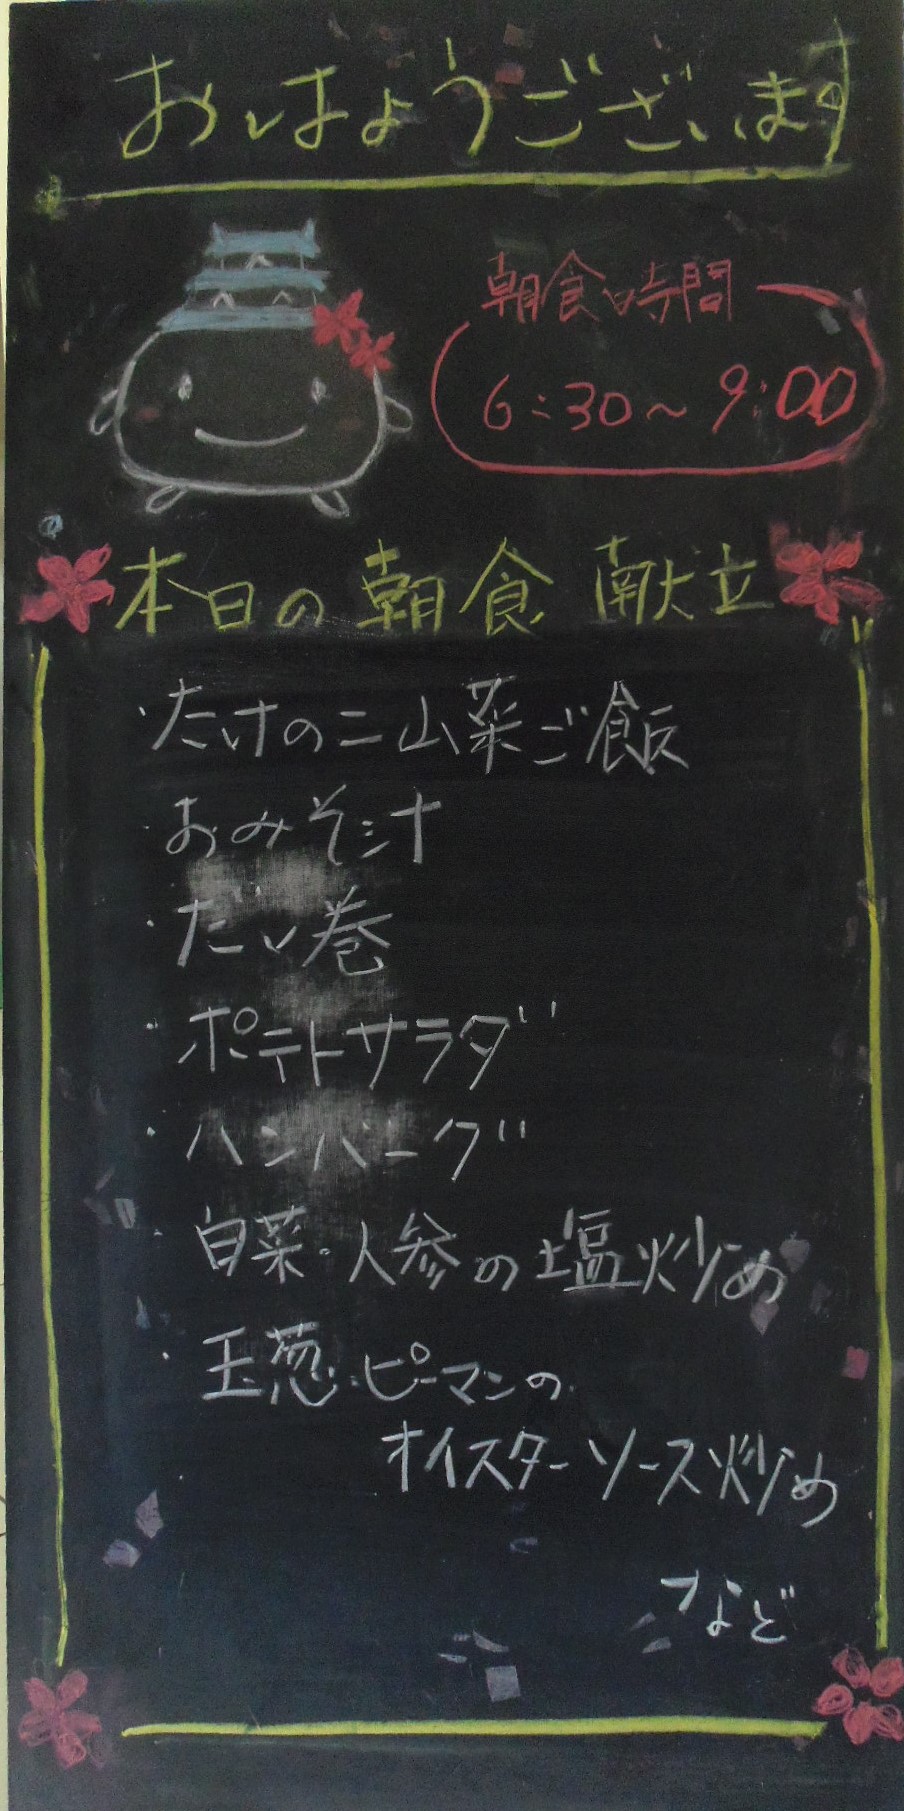 おはようございます
朝食時間
6:30〜9:00
本日の朝食 献立
・たけのこ山菜ご飯
・おみそ汁
・だし巻
・ポテトサラダ
・ハンバーグ
白菜・人参の塩炒め
・玉葱・ピーマンの
オイスターソース炒め
など